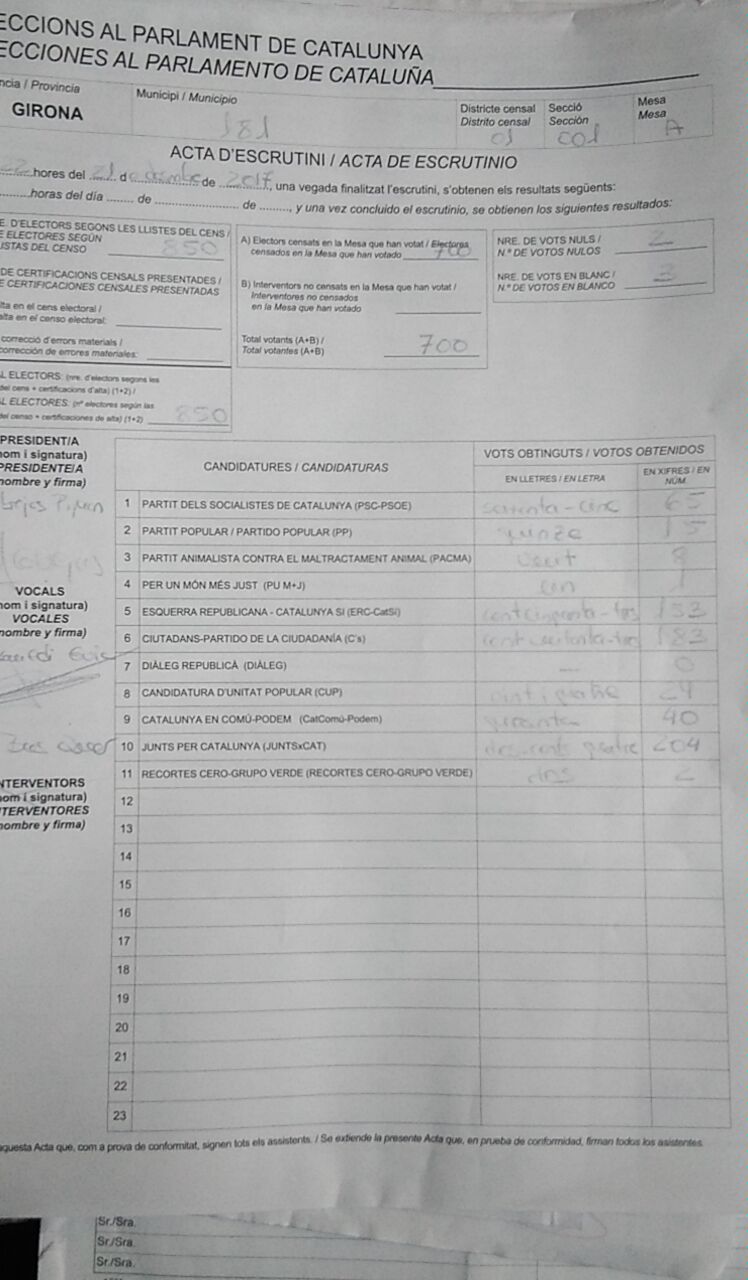 ECCIONS AL PARLAMENT DE CATALUNYA
ECCIONES AL PARLAMENTO DE CATALUÑA
ncia / Provincia
GIRONA
Municipi / Municipio
181
Districte censal
Distrito censal
01
Secció
Sección
001
Mesa
Mesa
A
ACTA D'ESCRUTINI / ACTA DE ESCRUTINIO
22 hores del 21 d desembre de 2017, una vegada finalitzat l'escrutini, s'obtenen els resultats següents:
horas del día ........ de ........................ de ........., y una vez concluido el escrutinio, se obtienen los siguientes resultados:
E. D'ELECTORS SEGONS LES LLISTES DEL CENS /
E ELECTORES SEGÚN
ISTAS DEL CENSO 850
DE CERTIFICACIONS CENSALS PRESENTADES /
E CERTIFICACIONES CENSALES PRESENTADAS
lta en el cens electoral /
alta en el censo electoral:
correcció d'errors materials /
corrección de errores materiales:
AL ELECTORS: (nre. d'electors segons les
del cens + certificacions d'alta) (1+2) /
AL ELECTORES: (nº electores según las
del censo + certificaciones de alta) (1+2) 850
A) Electors censats en la Mesa que han votat / Electores
censados en la Mesa que han votado 700
B) Interventors no censats en la Mesa que han votat /
Interventores no censados
en la Mesa que han votado
Total votants (A+B) /
Total votantes (A+B) 700
NRE. DE VOTS NULS /
N.º DE VOTOS NULOS 2
NRE. DE VOTS EN BLANC /
N.º DE VOTOS EN BLANCO 3
PRESIDENT/A
nom i signatura)
PRESIDENTE/A
nombre y firma)
VOCALS
nom i signatura)
VOCALES
nombre y firma)
NTERVENTORS
nom i signatura)
NTERVENTORES
nombre y firma)
CANDIDATURES / CANDIDATURAS
VOTS OBTINGUTS / VOTOS OBTENIDOS
EN LLETRES / EN LETRA
EN XIFRES / EN NÚM.
1 PARTIT DELS SOCIALISTES DE CATALUNYA (PSC-PSOE) seixanta-cinc 65
2 PARTIT POPULAR / PARTIDO POPULAR (PP) quinze 15
3 PARTIT ANIMALISTA CONTRA EL MALTRACTAMENT ANIMAL (PACMA) vuit 8
4 PER UN MÓN MÉS JUST (PU M+J) 1
5 ESQUERRA REPUBLICANA - CATALUNYA SI (ERC-CatSí) 153
6 CIUTADANS-PARTIDO DE LA CIUDADANÍA (C's) 183
7 DIÀLEG REPUBLICÀ (DIÀLEG) — 0
8 CANDIDATURA D'UNITAT POPULAR (CUP) vint i quatre 24
9 CATALUNYA EN COMÚ-PODEM (CatComú-Podem) quranta 40
10 JUNTS PER CATALUNYA (JUNTSxCAT) dos-cents quatre 204
11 RECORTES CERO-GRUPO VERDE (RECORTES CERO-GRUPO VERDE) dos 2
12
13
14
15
16
17
18
19
20
21
22
23
aquesta Acta que, com a prova de conformitat, signen tots els assistents. / Se extiende la presente Acta que, en prueba de conformidad, firman todos los asistentes.
Sr./Sra.
Sr./Sra.
Sr./Sra.